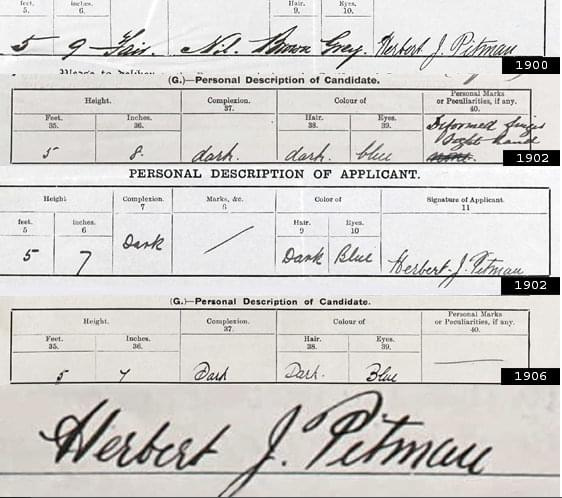 feet. inches. Hair. Eyes.
5. 6. 9. 10.
5 9 Fair. Nil. Brown Grey. Herbert J. Pitman
1900
(G.)—Personal Description of Candidate.
Height. Complexion. Colour of Personal Marks or Peculiarities, if any.
37. 40.
Feet. Inches. Hair. Eyes.
35. 36. 38. 39.
Deformed finger
right hand
none.
5 8. dark. dark. blue
1902
PERSONAL DESCRIPTION OF APPLICANT.
Height Complexion. Marks, &c. Color of Signature of Applicant.
7 8 11
feet. inches. Hair. Eyes.
5 6 9 10
5 7 Dark Dark Blue Herbert J. Pitman
1902
(G.)—Personal Description of Candidate.
Height. Complexion. Colour of Personal Marks or Peculiarities, if any.
37. 40.
Feet. Inches. Hair. Eyes.
35. 36. 38. 39.
5 7 Dark Dark. Blue
1906
Herbert J. Pitman